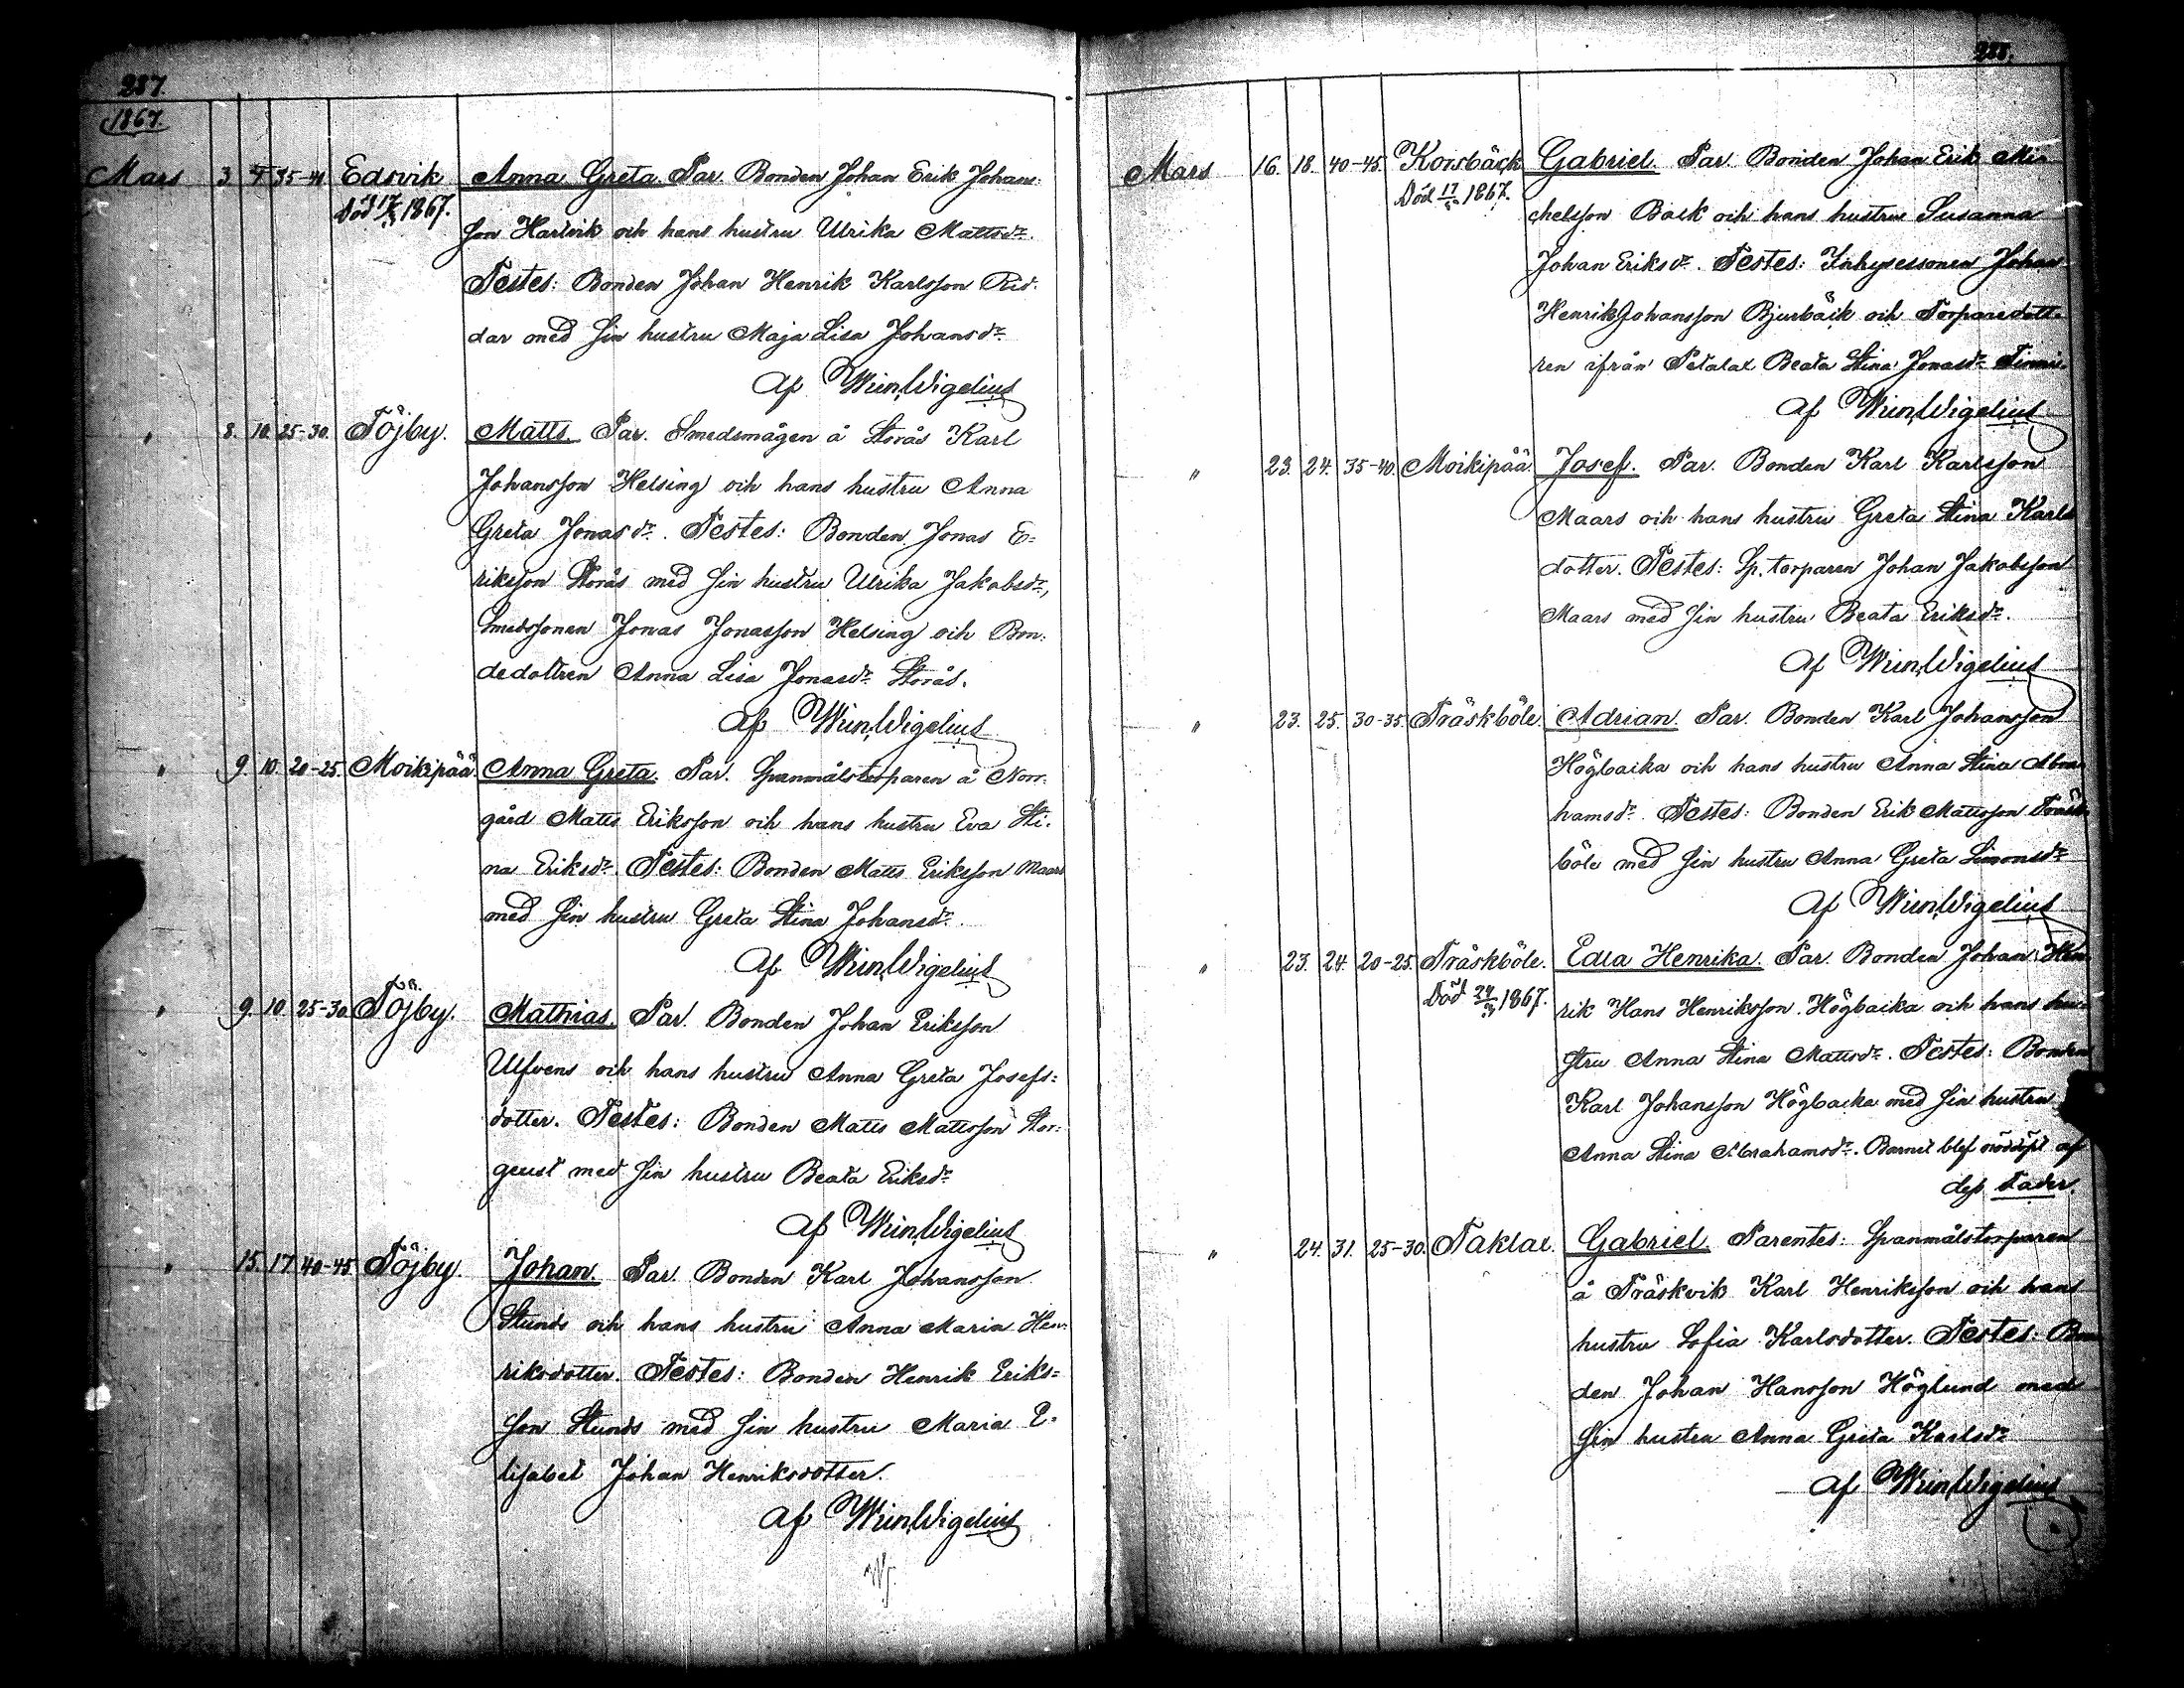 287.
1867.
Mars 3. 35-40 Edsvik Anna Greta. Par. Bonden Johan Erik Johans:
Död 17/3 1867. son Hartvik och hans hustru Ulrika Mattsdr.
Testes: Bonden Johan Henrik Karlsson Rid:
dar med sin hustru Maja Lisa Johansdr
Af Wm Wigelius
" 8. 10. 25-30. Töjby. Matts. Par. Smedsmågen å Storås Karl
Johansson Helsing och hans hustru Anna
Greta Jonasdr. Testes: Bonden Jonas E=
riksson Storås med sin hustru Ulrika Jakobsdr,
Smedssonen Jonas Jonasson Helsing och Bon:
dedottren Anna Lisa Jonasdr Storås.
Af Wm Wigelius
" 9. 10. 20-25. Moikipää Anna Greta. Par. Spanmålstorparen å Norr:
gård Matts Eriksson och hans hustru Eva Sti:
na Eriksdr. Testes: Bonden Matts Eriksson Maars
med sin hustru Greta Stina Johansdr.
Af Wm Wigelius
" 9. 10. 25-30. Töjby. Mathias. Par. Bonden Johan Eriksson
Ulfvens och hans hustru Anna Greta Josefs=
dotter. Testes: Bonden Matts Mattsson Stor:
geust med sin hustru Beata Eriksdr
Af Wm Wigelius
" 15. 17. 40-45 Töjby. Johan. Par. Bonden Karl Johansson
Stunds och hans hustru Anna Maria Hen:
riksdotter. Testes: Bonden Henrik Eriks=
son Stunds med sin hustru Maria E=
lisabet Johan Henriksdotter.
Af Wm Wigelius
288.
Mars 16. 18. 40-45. Korsbäck Gabriel. Par. Bonden Johan Erik Mi=
Död 17/5 1867. chelsson Back och hans hustru Susanna
Johan Eriksdr. Testes: Inhysessonen Johan
Henrik Johansson Bjurbäck och Torparedott=
ren ifrån Petalax Beata Stina Jonasdr
Af Wm Wigelius
" 23. 24. 35-40. Moikipää. Josef. Par. Bonden Karl Karlsson
Maars och hans hustru Greta Stina Karls
dotter. Testes: Sp. torparen Johan Jakobsson
Maars med sin hustru Beata Eriksdr.
Af Wm Wigelius
" 23. 25. 30-35. Träskböle. Adrian. Par. Bonden Karl Johansson
Högbacka och hans hustru Anna Stina Abra
hamsdr. Testes: Bonden Erik Mattsson Träsk
böle med sin hustru Anna Greta Simonsdr
Af Wm Wigelius
" 23. 24. 20-25. Träskböle. Edla Henrika. Par. Bonden Johan Hen
Död 24/3 1867. rik Hans Henriksson Högbacka och hans hu=
stru Anna Stina Mattsdr. Testes: Bonden
Karl Johansson Högbacka med sin hustru
Anna Stina Abrahamsdr. Barnet blef nöddöpt af
dess Fader.
" 24. 31. 25-30. Taklax. Gabriel. Parentes: Spanmålstorparen
å Träskvik Karl Henriksson och hans
hustru Sofia Karlsdotter. Testes: Bon
den Johan Hansson Höglund med
sin hustru Anna Greta Karlsdr
Af Wm Wigelius